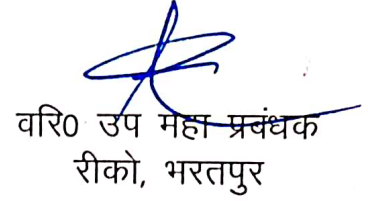 वरि0 उप महा प्रबंधक
रीको, भरतपुर